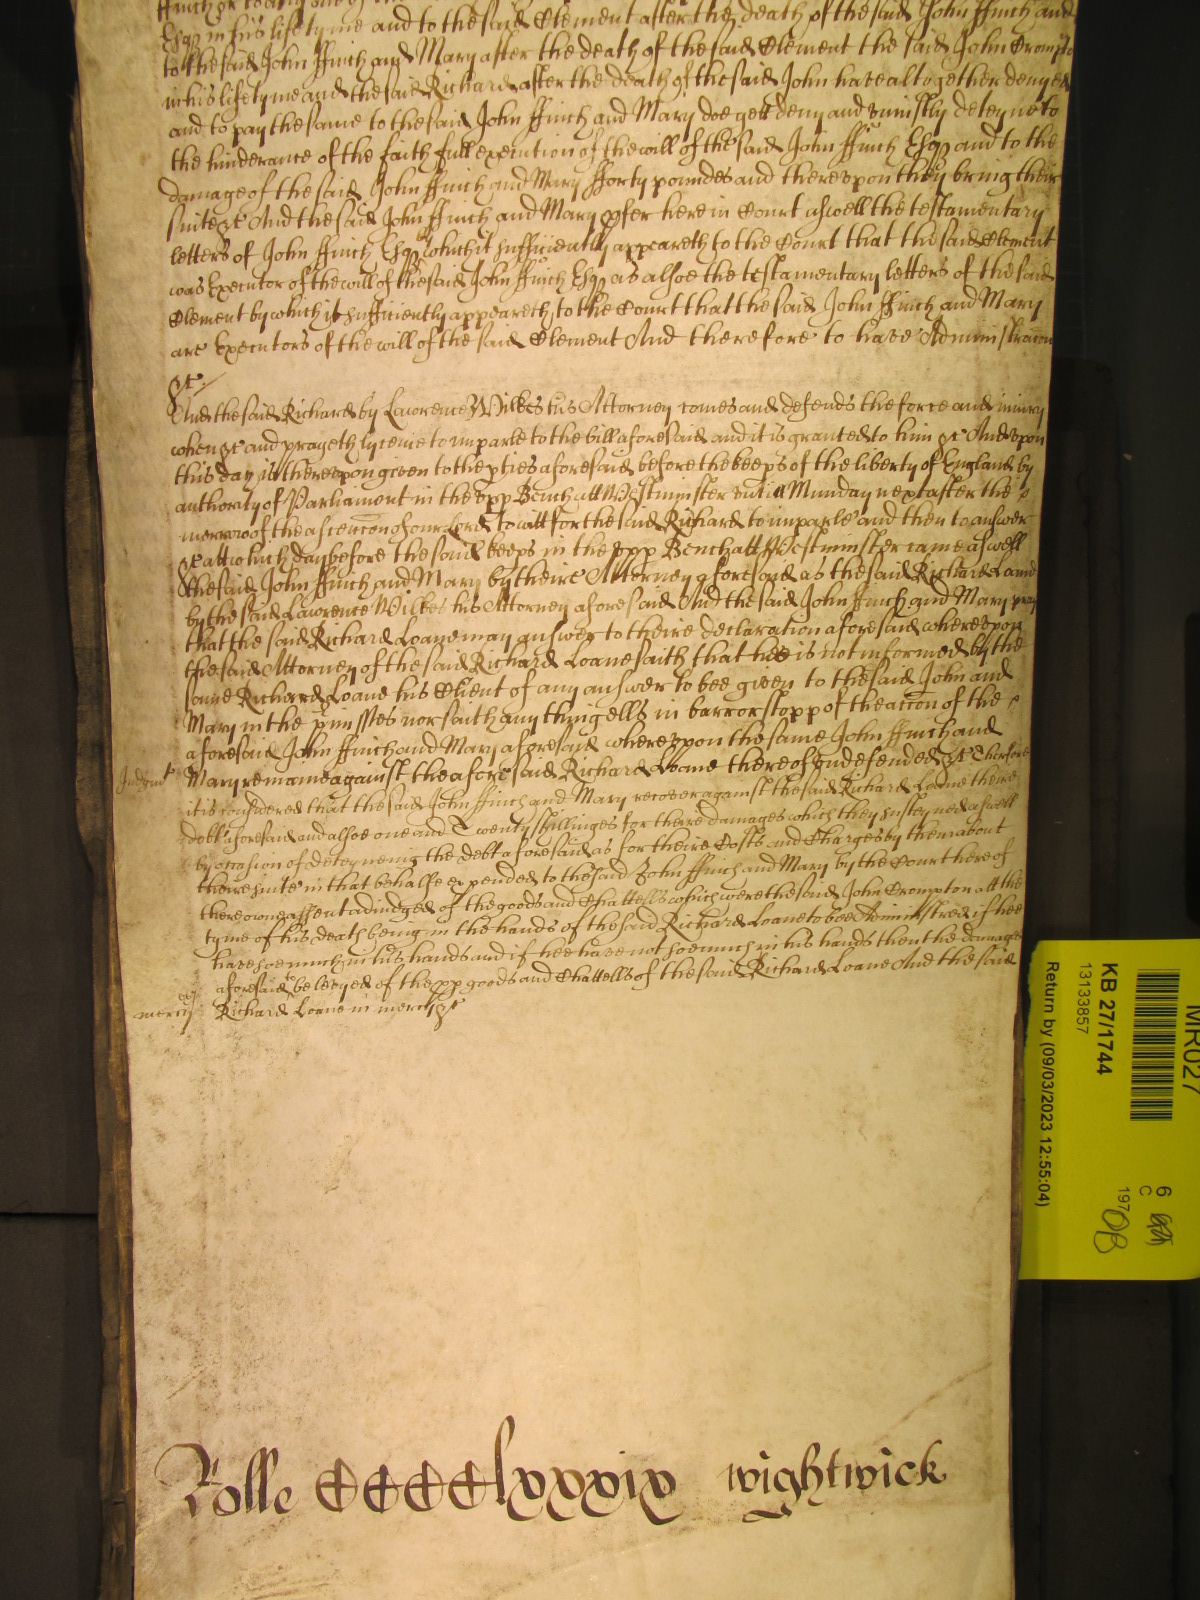 Esqr in his lifetyme and to the said Clement after the death of the said John Ffinch and
to the said John Ffinch and Mary after the death of the said Clement the said John Crompton
in his lifetyme and the said Richard after the death of the said John have altogether denyed
and to pay the same to the said John Ffinch and Mary doe yett deny and uniustly deteyne to
the hinderance of the faithfull execution of the will of the said John Ffinch Esqr and to the
damage of the said John Ffinch and Mary fforty poundes and thereupon they bring their
suite &c And the said John Ffinch and Mary pfer here in Court aswell the testamentary
letters of John Ffinch Esqr by which it sufficiently appeareth to the Court that the said Clement
was Executor of the will of the said John Ffinch Esqr as alsoe the testamentary letters of the said
Clement by which it sufficiently appeareth to the Court that the said John Ffinch and Mary
are Executors of the will of the said Clement And therefore to have Administracon
&c
And the said Richard by Lawrence Wilkes his Attorney comes and defends the force and iniury
when &c and prayeth lycence to imparle to the bill aforesaid and it is granted to him &c And upon
this day is thereupon given to the pties aforesaid before the keeps of the liberty of England by
authority of Parliament in the upp Bench att Westminster untill Munday next after the
morrow of the ascencon of our Lord to witt for the said Richard to imparle and then to answer
&c att which day before the said keeps in the upp Bench att Westminster came aswell
the said John Ffinch and Mary by theire Attorney aforesaid as the said Richard Loane
by the said Lawrence Wilkes his Attorney aforesaid And the said John Ffinch and Mary pray
that the said Richard Loane may answer to theire declaration aforesaid whereupon
the said Attorney of the said Richard Loane saith that hee is not informed by the
same Richard Loane his Client of any answer to bee given to the said John and
Mary in the pmisses nor saith any thing ells in barr or stopp of the accon of the
aforesaid John Ffinch and Mary aforesaid whereupon the same John Ffinch and
Judgmt Mary remaine against the aforesaid Richard Loane thereof undefended &c Therfore
it is considered that the said John Ffinch and Mary recover against the said Richard Loane theire
debt aforesaid and alsoe one and Twenty shillinges for theire damages which they susteyned aswell
by occasion of deteyneing the debt aforesaid as for theire Costs and Charges by them about
theire suite in that behalfe expended to the said John Ffinch and Mary by the Court here of
there owne assent adiudged of the goods and Chattells which were the said John Crompton att the
tyme of his death being in the hands of the said Richard Loane to bee Administred if hee
have soe much in his hands and if hee have not soe much in his hands then the damages
aforesaid to be levyed of the pp goods and Chattells of the said Richard Loane And the said
mercy Richard Loane in mercy &c
Rolle CCCClxxxix wightwick
MR027
KB 27/1744
13133857
Return by (09/03/2023 12:55:04)
6
C
197